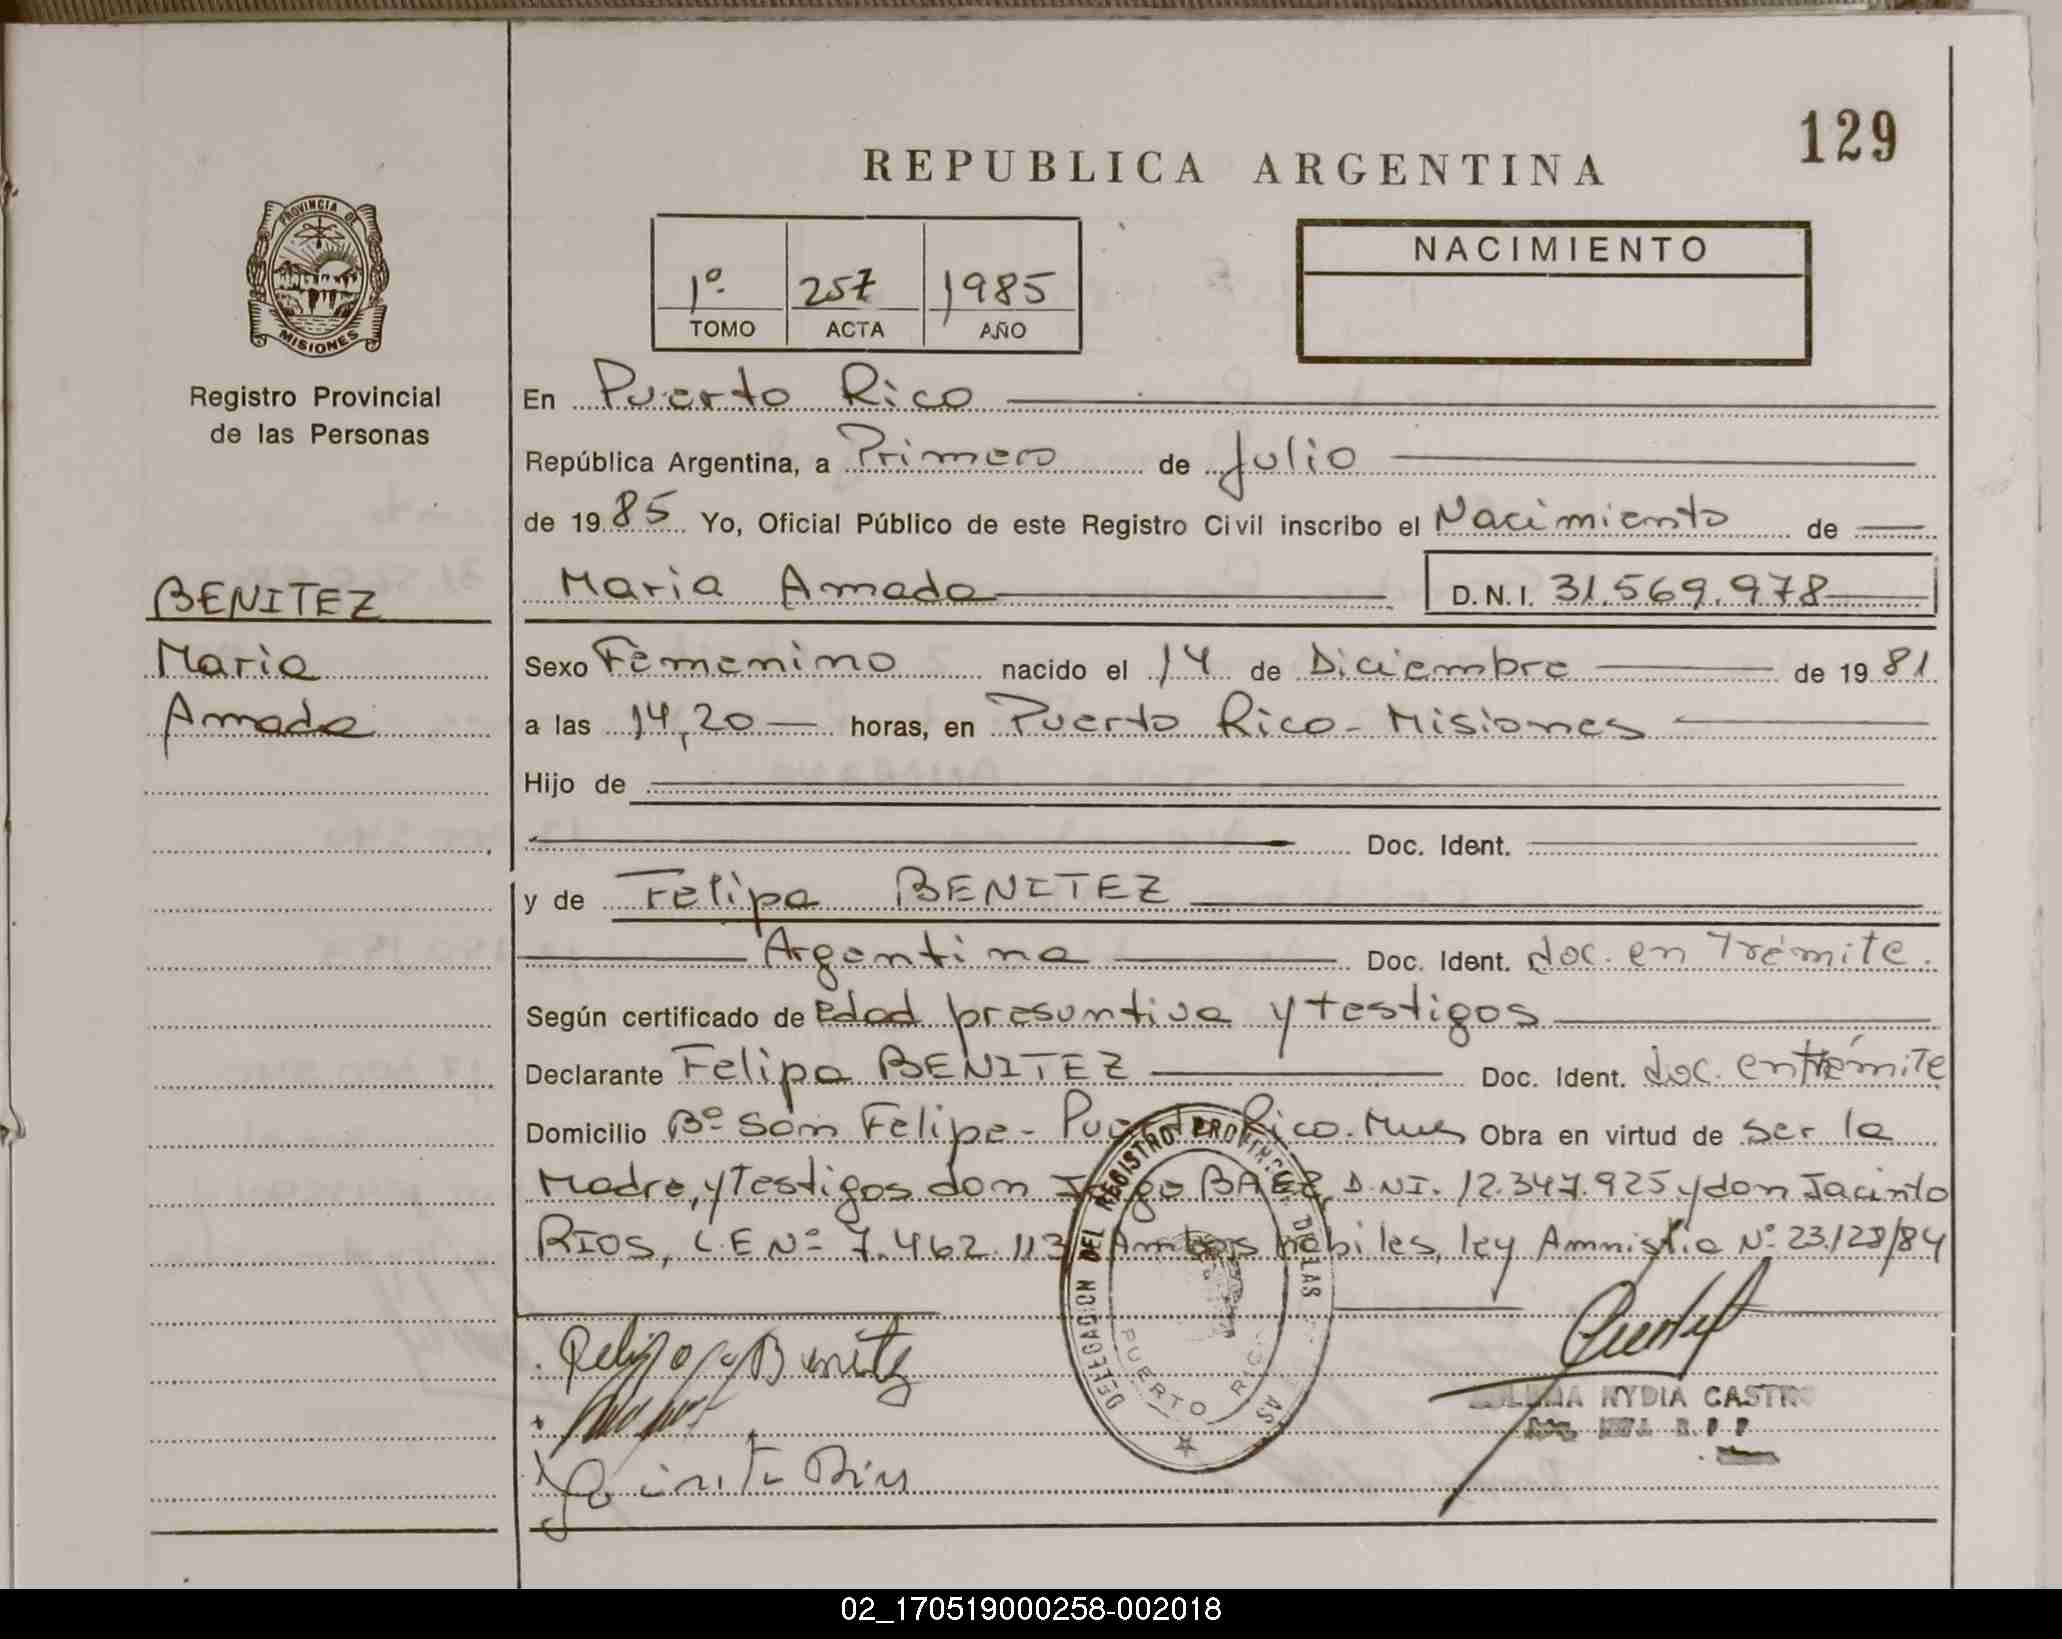 129
REPUBLICA ARGENTINA
PROVINCIA DE
MISIONES
Registro Provincial
de las Personas
1º 257 1985
TOMO ACTA AÑO
NACIMIENTO
En Puerto Rico
República Argentina, a Primero de Julio
de 1985 Yo, Oficial Público de este Registro Civil inscribo el Nacimiento de
BENITEZ
Maria
Amada
Maria Amada D.N.I. 31.569.978
Sexo Femenino nacido el 14 de Diciembre de 1981
a las 14,20 horas, en Puerto Rico - Misiones
Hijo de
Doc. Ident.
y de Felipa BENITEZ
Argentina Doc. Ident. doc. en Trámite.
Según certificado de Edad presuntiva y testigos
Declarante Felipa BENITEZ Doc. Ident. doc. en trámite
Domicilio Bº San Felipe - Puerto Rico. Mnes Obra en virtud de ser la
Madre, y Testigos don BAEZ, D.NI. 12.347.925 y don Jacinto
RIOS, L.E Nº 7.462.113 Ambos habiles, ley Amnistia Nº 23/28/84
DELEGACION DEL REGISTRO PROVINCIAL DE LAS
PUERTO RICO
Felipa Benitez
NYDIA CASTRO
Jacinto Rios
02_170519000258-002018